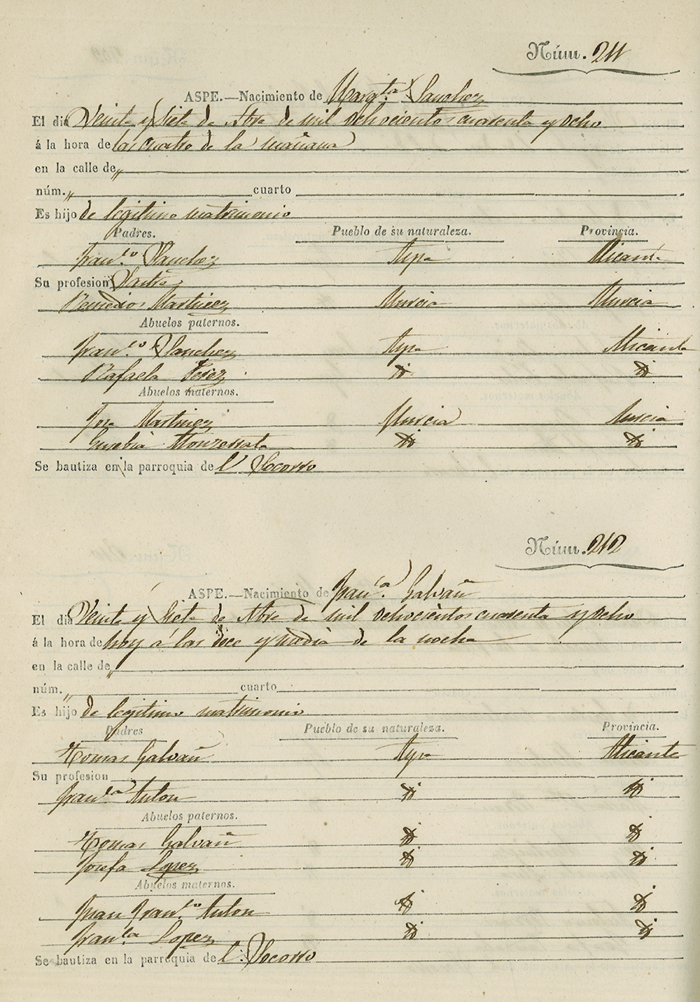 Núm. 211
ASPE.—Nacimiento de Marg.ta Sanchez
El dia Veinte y Siete de Abre de mil ochocientos cuarenta y ocho
á la hora de las cuatro de la mañana
en la calle de „
núm. „ cuarto
Es hijo de legitimo matrimonio
Padres. Pueblo de su naturaleza. Provincia.
Fran.co Sanchez Aspe Alicante
Su profesion Sastre
Remedios Martinez Murcia Murcia
Abuelos paternos.
Fran.co Sanchez Aspe Alicante
Rafaela Perez id id
Abuelos maternos.
Jose Martinez Murcia Murcia
Eusebia Monzerrata id id
Se bautiza en la parroquia de l' Socorro
Núm. 212
ASPE.—Nacimiento de Fran.ca Galvañ
El dia Veinte y Siete de Abre de mil ochocientos cuarenta y ocho
á la hora de hoy á las doce y media de la noche
en la calle de „
núm. „ cuarto
Es hijo de legitimo matrimonio
Padres Pueblo de su naturaleza. Provincia.
Tomas Galvañ Aspe Alicante
Su profesion
Fran.ca Anton id id
Abuelos paternos.
Tomas Galvañ id id
Josefa Lopez id id
Abuelos maternos.
Juan Fran.co Anton id id
Fran.ca Lopez id id
Se bautiza en la parroquia de l' Socorro